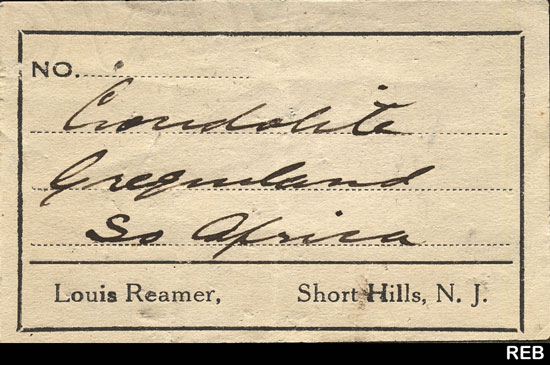 NO.
Crocidolite
Grequaland
So Africa
Louis Reamer, Short Hills, N. J.
REB